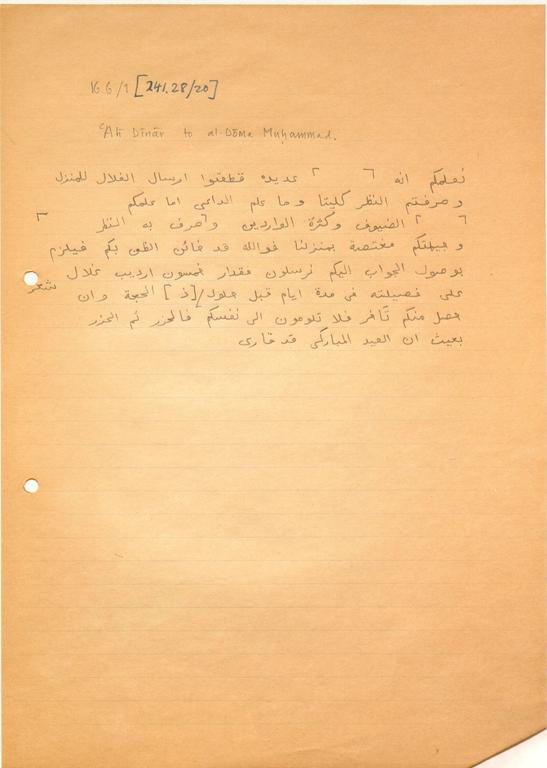 16.6/1 [241.28/20]
ʿAlī Dīnār to al-Dōma Muḥammad.
نعلمكم انه ٦ ٢ عديده قطعتوا ارسال الغلال للمنزل
وصرفتم النظر كليتا وما علم الداعى اما علمكم
٦ ٢ الضيوف وكثرة الواردين وصرف به النظر ٣
وجهتكم مختصة بمنزلنا فوالله قد خائن الظن بكم فيلزم
بوصول الجواب اليكم ترسلون مقدار خمسون اردب غلال
على فصيلته فى مدة ايام قبل حلول /[ذ] الحجة وان
حصل منكم تأخر فلا تلومون الى نفسكم فالحزر ثم الحزر
بحيث ان العيد المباركى قد قارى